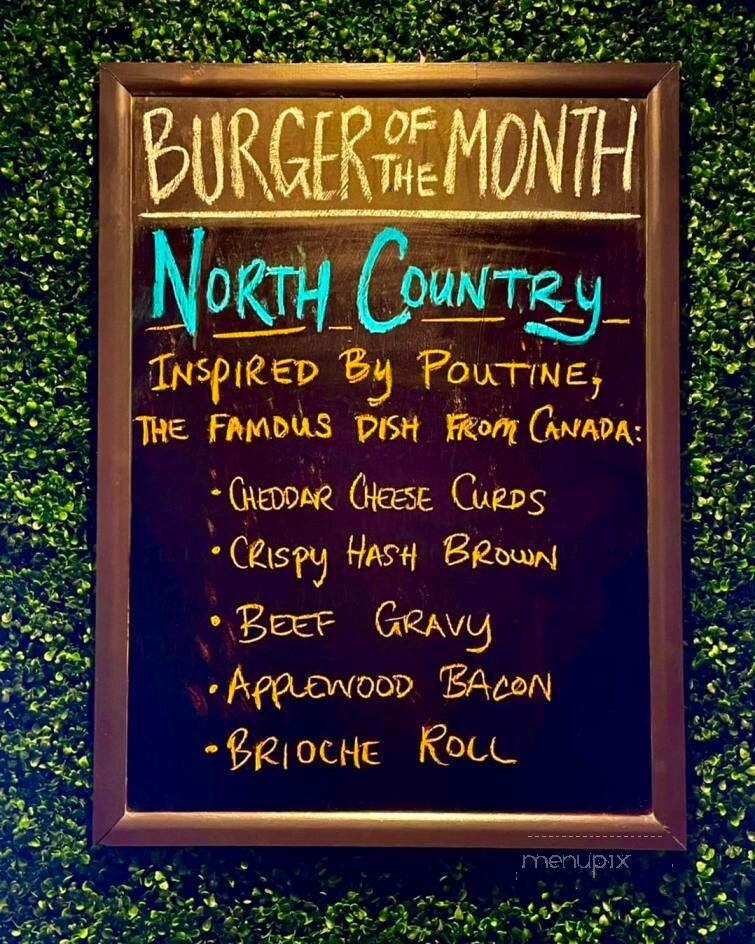 BURGER OF THE MONTH
NORTH COUNTRY
INSPIRED BY POUTINE,
THE FAMOUS DISH FROM CANADA:
• CHEDDAR CHEESE CURDS
• CRISPY HASH BROWN
• BEEF GRAVY
• APPLEWOOD BACON
• BRIOCHE ROLL
menupix